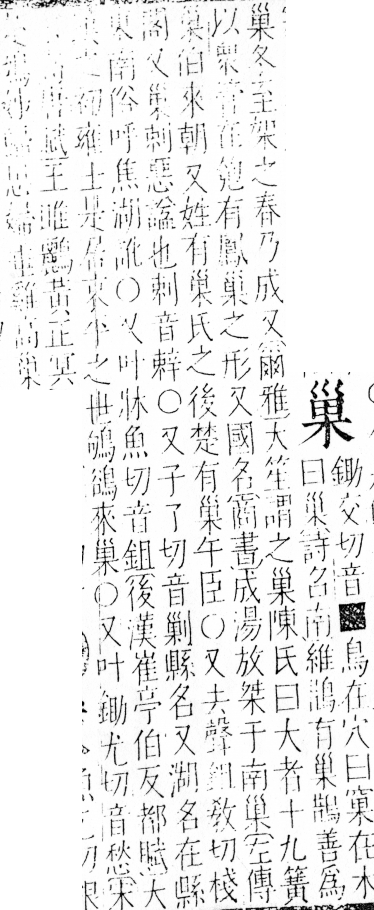 巢
鋤交切音 鳥在穴曰窠在木
曰巢詩召南維鵲有巢鵲善爲
巢冬至架之春乃成又爾雅大笙謂之巢陳氏曰大者十九簧
以衆管在匏有鳳巢之形又國名商書成湯放桀于南巢左傳
巢伯來朝又姓有巢氏之後楚有巢午臣○又去聲鉏敎切棧
閣又巢刺惡諡也刺音辢○又子了切音剿縣名又湖名在縣
東南俗呼焦湖訛○又叶牀魚切音鉏後漢崔亭伯反都賦大
漢之初雍土是居哀平之世鴝鵒來巢○又叶鋤尤切音愁宋
賦王雎鸝黃正冥
思婦垂雞高巢